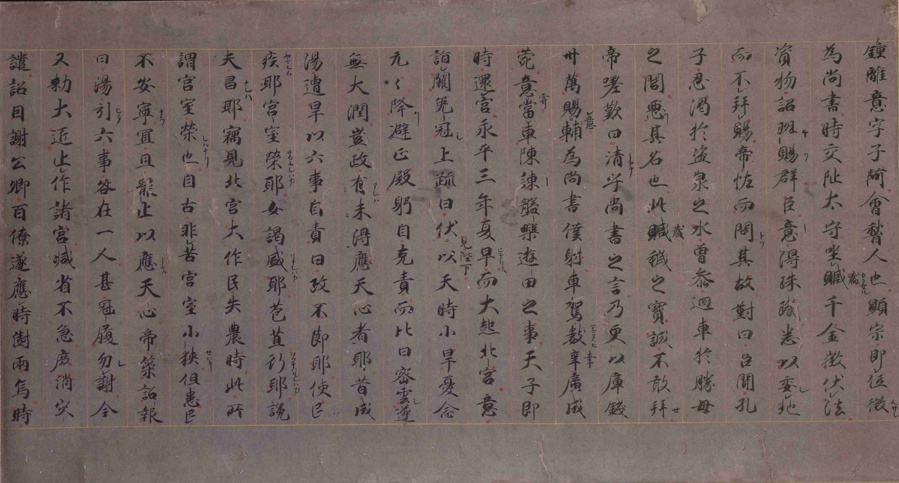 鍾離意字子阿會稽人也顯宗即位徵
為尚書時交阯太守坐贓千金徵伏法
資物詔班賜群臣意得珠璣悉以委地
而不拜賜帝恠而問其故對曰臣聞孔
子忍渴於盜泉之水曾參迴車於勝母
之閭惡其名也此贓穢之寶誠不敢拜
帝嗟歎曰清乎尚書之言乃更以庫錢
卅萬賜意轉為尚書僕射車駕數幸廣成
菀意當車陳諫般樂遊田之事天子即
時還宮永平三年夏旱而大起北宮意
詣闕免冠上疏曰伏見陛下以天時小旱憂念
元々降避正殿躬自克責而比日密雲遂
無大潤豈政有未得應天心者耶昔成
湯遭旱以六事自責曰政不節耶使民
疾耶宮室榮耶女謁盛耶苞苴行耶讒
夫昌耶竊見北宮大作民失農時此所
謂宮室榮也自古非苦宮室小狹但患民
不安寧宜且罷止以應天心帝策詔報
曰湯引六事咎在一人其冠履勿謝今
又勅大匠止作諸宮減省不急庶消灾
譴詔因謝公卿百僚遂應時澍雨焉時